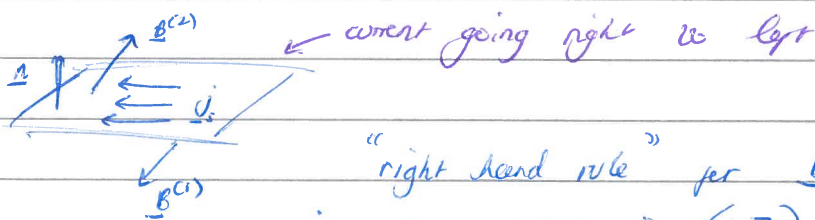 B^(2)
current going right to left
n
j_s
"right hand rule" for B
B^(1)